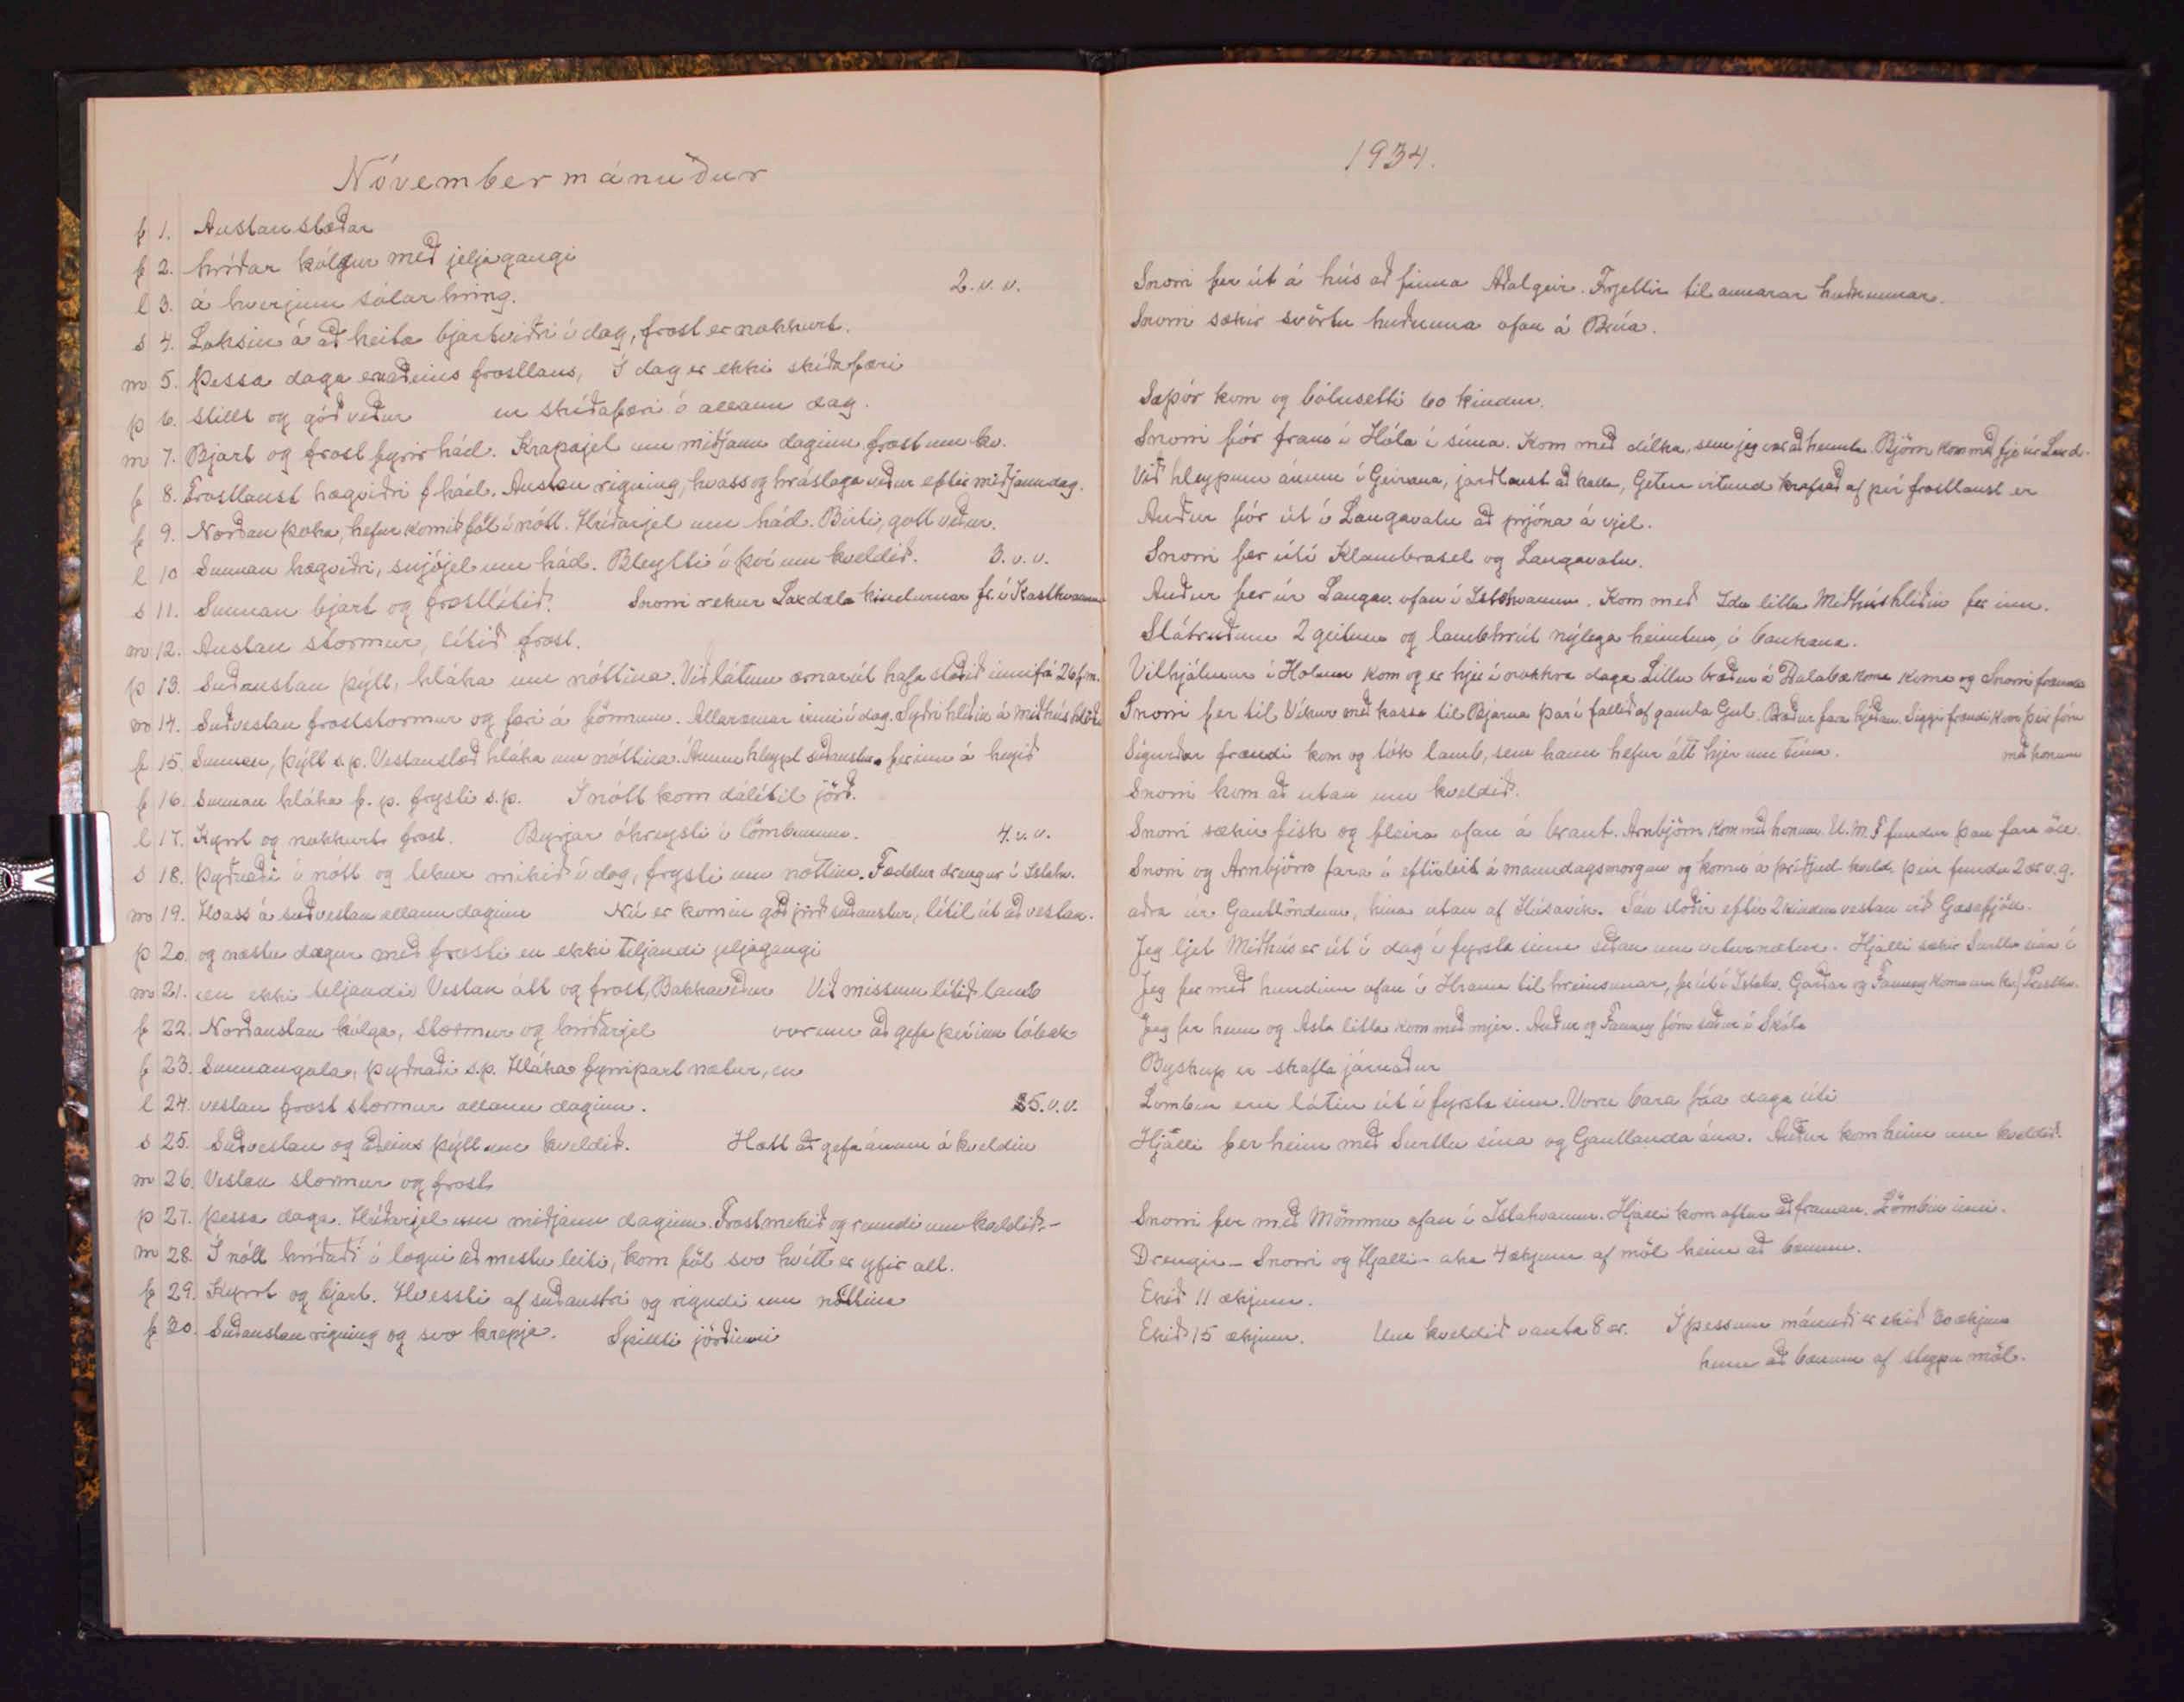 Nóvembermánuður
f 1. Austan slæðar
f 2. hríðar kólgur með jeljagangi
l 3. á hverjum sólarhring. 2. v. v.
s 4. Loksins á að heita bjartviðri í dag, frost er nokkurt.
m 5. Þessa daga er aðeins frostlaus, Í dag er ekki skíðafæri
þ 6. stillt og góð veður en skíðafæri á allann dag.
m 7. Bjart og frost fyrir hád. Krapajel um miðjann daginn, frost um kv.
f 8. Frostlaust hægviðri f. hád. Austan rigning, hvass og hráslaga veður eftir miðjann dag.
f 9. Norðan þoka, hefur komið föl í nótt. Hríðarjel um hád. Birti, gott veður.
l 10 Sunnan hægviðri, snjójel um hád. Bleytti í því um kveldið. 3. v. v.
s 11. Sunnan bjart og frostlítið. Snorri rekur Laxdæla kindurnar fr. í Kasthvamm
m 12. Austan stormur, lítið frost.
þ 13. Suðaustan þýtt, hláka um nóttina. Við látum ærnar út hafa staðið inni frá 26 f. m.
m 14. Suðvestan froststormur og færi á fönnum. Allar ærnar inni í dag. Syðri hliðin á miðhúshlíð
f 15. Sunnan, þýtt s.p. Vestanstæð hláka um nóttina. Ánum hleypt suðaustur fer inn á heyið
f 16. Sunnan hláka f. p. frysti s.p. Í nótt kom dálítil jörð.
l 17. Kyrrt og nokkurt frost. Byrjar óhreysti í lömbunum. 4. v. v.
s 18. Þyðnaði í nótt og tekur mikið í dag, frysti um nóttina. Fæddur drengur í Ystahv.
m 19. Hvass á suðvestan allann daginn Nú er komin góð jörð suðaustur, lítil út að vestan.
þ 20. og næstu dægur með frosti en ekki teljandi jeljagangi
m 21. en ekki teljandi Vestan átt og frost, Bakkaveður Við missum lítið lamb
f 22. Norðaustan kólga, stormur og hríðarjel vorum að gefa því inn tóbak
f 23. Sunnangola, þyðnaði s.p. Hláka fyrripart nætur, en
l 24. vestan frost stormur allann daginn. 5. v. v.
s 25. Suðvestan og aðeins þýtt um kveldið. Hætt að gefa ánum á kveldin
m 26. Vestan stormur og frost
þ 27. þessa daga. Hríðarjel um miðjann daginn. Frost mikið og renndi um kveldið. -
m 28. Í nótt hríðaði í logni að mestu leiti, kom föl svo hvítt er yfir allt.
f 29. Kyrrt og bjart. Hvessti af suðaustri og rigndi um nóttina
f 30. Suðaustan rigning og svo krepja. Spillti jörðinni
1934.
Snorri fer út á hús að finna Aðalgeir. Frjettir til annarar huðnunnar.
Snorri sækir svörtu huðnuna ofan á Brúa.
Sæþór kom og bólusetti 60 kindur.
Snorri fór fram í Hóla í síma. Kom með dilka, sem jeg var að heimta. Björn kom með fje úr Laxd.
Við hleypum ánum í Geirana, jarðlaust að kalla, Getur vitund krafsað af því frostlaust er
Auður fór út í Langavatn að prjóna á vjel.
Snorri fer út í Klambrasel og Langavatn.
Auður fer úr Langav. ofan í Ystahvamm. Kom með Ida litla Miðhúshliðin fer inn.
Slátruðum 2 geitum og lambhrút nýlega heimtum, í baukana.
Vilhjálmur í Holum kom og er hjer í nokkra daga Lillu bræður á Halabæ koma og Snorri frændi
Snorri fer til Víkur með kassa til Bjarna þar í fallið af gamla Gul. Bræður fara hjeðan. Siggi frændi kom þeir fóru
Sigurður frændi kom og tók lamb, sem hann hefur átt hjer um tíma. með honum
Snorri kom að utan um kveldið.
Snorri sækir fisk og fleira ofan á braut. Arnbjörn kom með honum U.M.F. fundur þau fara öll.
Snorri og Arnbjörn fara í eftirleit á mánudagsmorgun og komu á þriðjud. kveld. þeir fundu 2 ær v. g.
aðra úr Gautlöndum, hina utan af Húsavík. Sáu slóðir eftir 2 kindur vestan við Gæsafjöll.
Jeg ljet Miðhús ær út í dag í fyrsta sinn síðan um veturnætur. Hjalli sækir Surtlu sína í
Jeg fer með hundinn ofan í Hraun til hreinsunar, fer út í Ystahv. Garðar og Fanney koma um kv.
Jeg fer heim og Asta litla kom með mjer. Auður og Fanney fóru suður í Skóla
Byskup er skafla járnaður
Lömbin eru látin út í fyrsta sinn. Voru bara fáa daga úti
Hjalli fer heim með Surtlu sína og Gautlanda ána. Auður kom heim um kveldið.
Snorri fer með Mömmu ofan í Ystahvamm. Hjalli kom aftur að framan. Lömbin inni.
Drengir - Snorri og Hjalli - aka 4 ækjum af möl heim að bænum.
Ekið 11 ækjum.
Ekið 15 ækjum. Um kveldið vanta 8 ær. Í þessum mánuði er ekið 30 ækjum
heim að bænum af steypu möl.